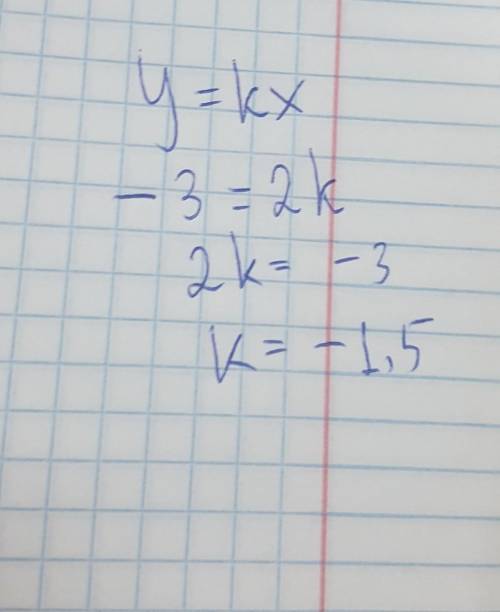 y = kx
- 3 = 2k
2k = - 3
k = - 1,5